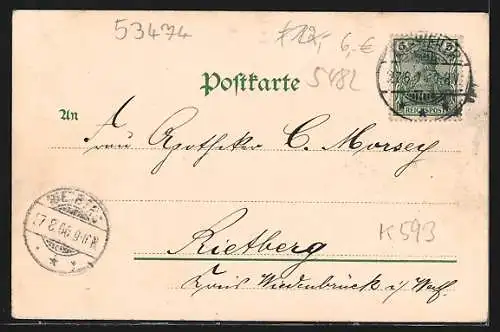 53474
6,-€
5482
Postkarte
REICHSPOST
An
Frau Apotheker C. Morsey
Rietberg
K593
Kreis Wiedenbrück i/ Westf.